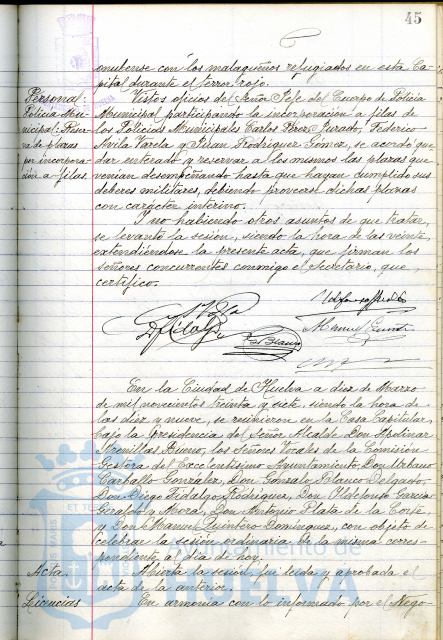 45
onubense con los malagueños refugiados en esta Ca-
pital durante el terror rojo.
Personal:
Policía Mu-
nicipal: Reser-
va de plazas
por incorpora-
ción a filas
Vistos oficios del Señor Jefe del Cuerpo de Policía
Municipal participando la incorporación a filas de
los Policías Municipales Carlos Pérez Jurado, Federico
Avila Varela y Rodríguez Gómez, se acordó que-
dar enterado y reservar a los mismos las plazas que
venian desempeñando hasta que hayan cumplido sus
deberes militares, debiendo proveerse dichas plazas
con carácter interino.
Y no habiendo otros asuntos de que tratar,
se levantó la sesión, siendo la hora de las veinte,
extendiéndose la presente acta, que firman los
señores concurrentes conmigo el Secretario, que
certifico.
En la Ciudad de Huelva a diez de Marzo
de mil novecientos treinta y siete, siendo la hora de
las diez y nueve, se reunieron en la Casa Capitular,
bajo la Presidencia del Señor Alcalde Don Apolinar
Arenillas Bueno, los Señores Vocales de la Comisión
Gestora del Excelentísimo Ayuntamiento, Don Urbano
Carballo González, Don Gonzalo Blanco Delgado,
Don Diego Fidalgo Rodríguez, Don Ildefonso García
y Mora, Don Antonio Plata de la Corte,
y Don Manuel Quintero Domínguez, con objeto de
celebrar la sesión ordinaria de la misma corres-
pondiente al día de hoy.
Acta.
Abierta la sesión, fué leída y aprobada el
acta de la anterior.
Licencias
En armonía con lo informado por el Nego-
Ayuntamiento de
HUELVA